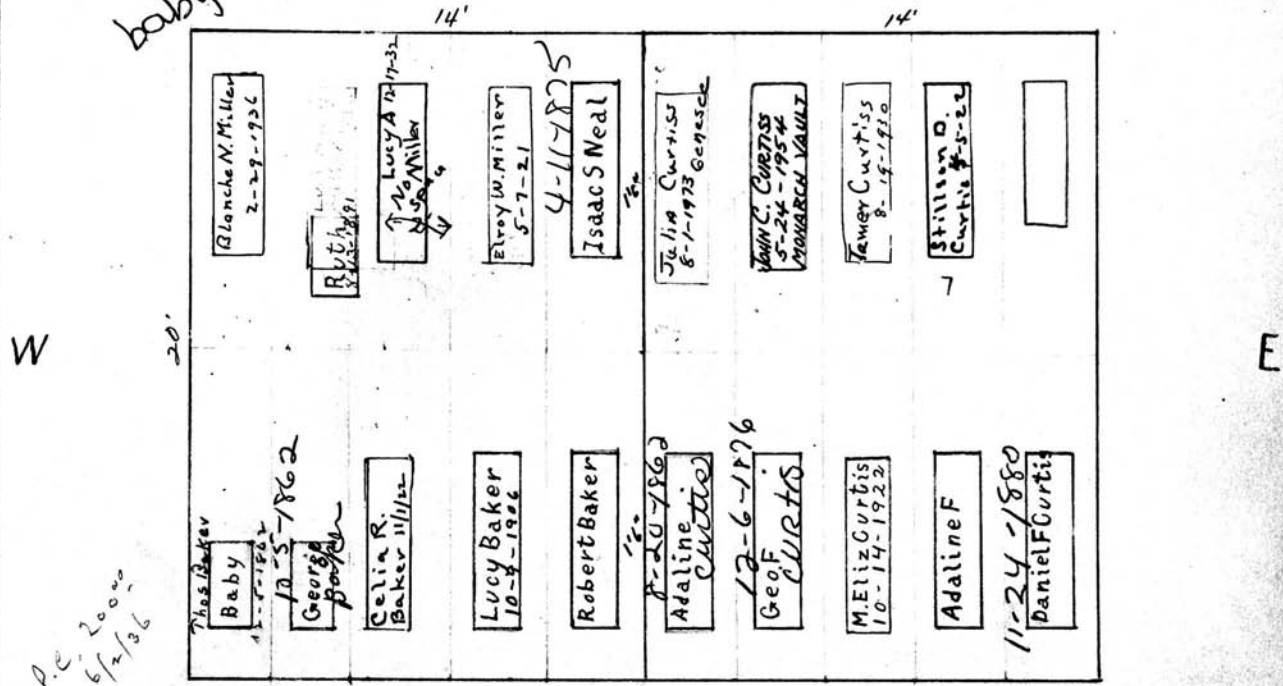 baby
14'
14'
Blanche N. Miller
2-29-1936
Ruth
Lucy A 12-17-32
No
Miller
Elroy W. Miller
5-7-21
4-11-1875
Isaac S Neal
Julia Curtiss
8-1-1973 Genesee
JOHN C. CURTISS
5-24-1954
MONARCH VAULT
Tamer Curtiss
8-19-1930
Stillson D.
Curtis
7
W
20'
E
Thos Baker
Baby
10-5-1862
George
Celia R.
Baker 11/1/22
Lucy Baker
Robert Baker
8-20-1862
Adaline
Curtis
12-6-1876
Geo F
CURTIS
M. Eliz Curtis
10-14-1922
Addaline F
11-24-1880
Daniel F Curtis
P.C. 20000
6/2/36